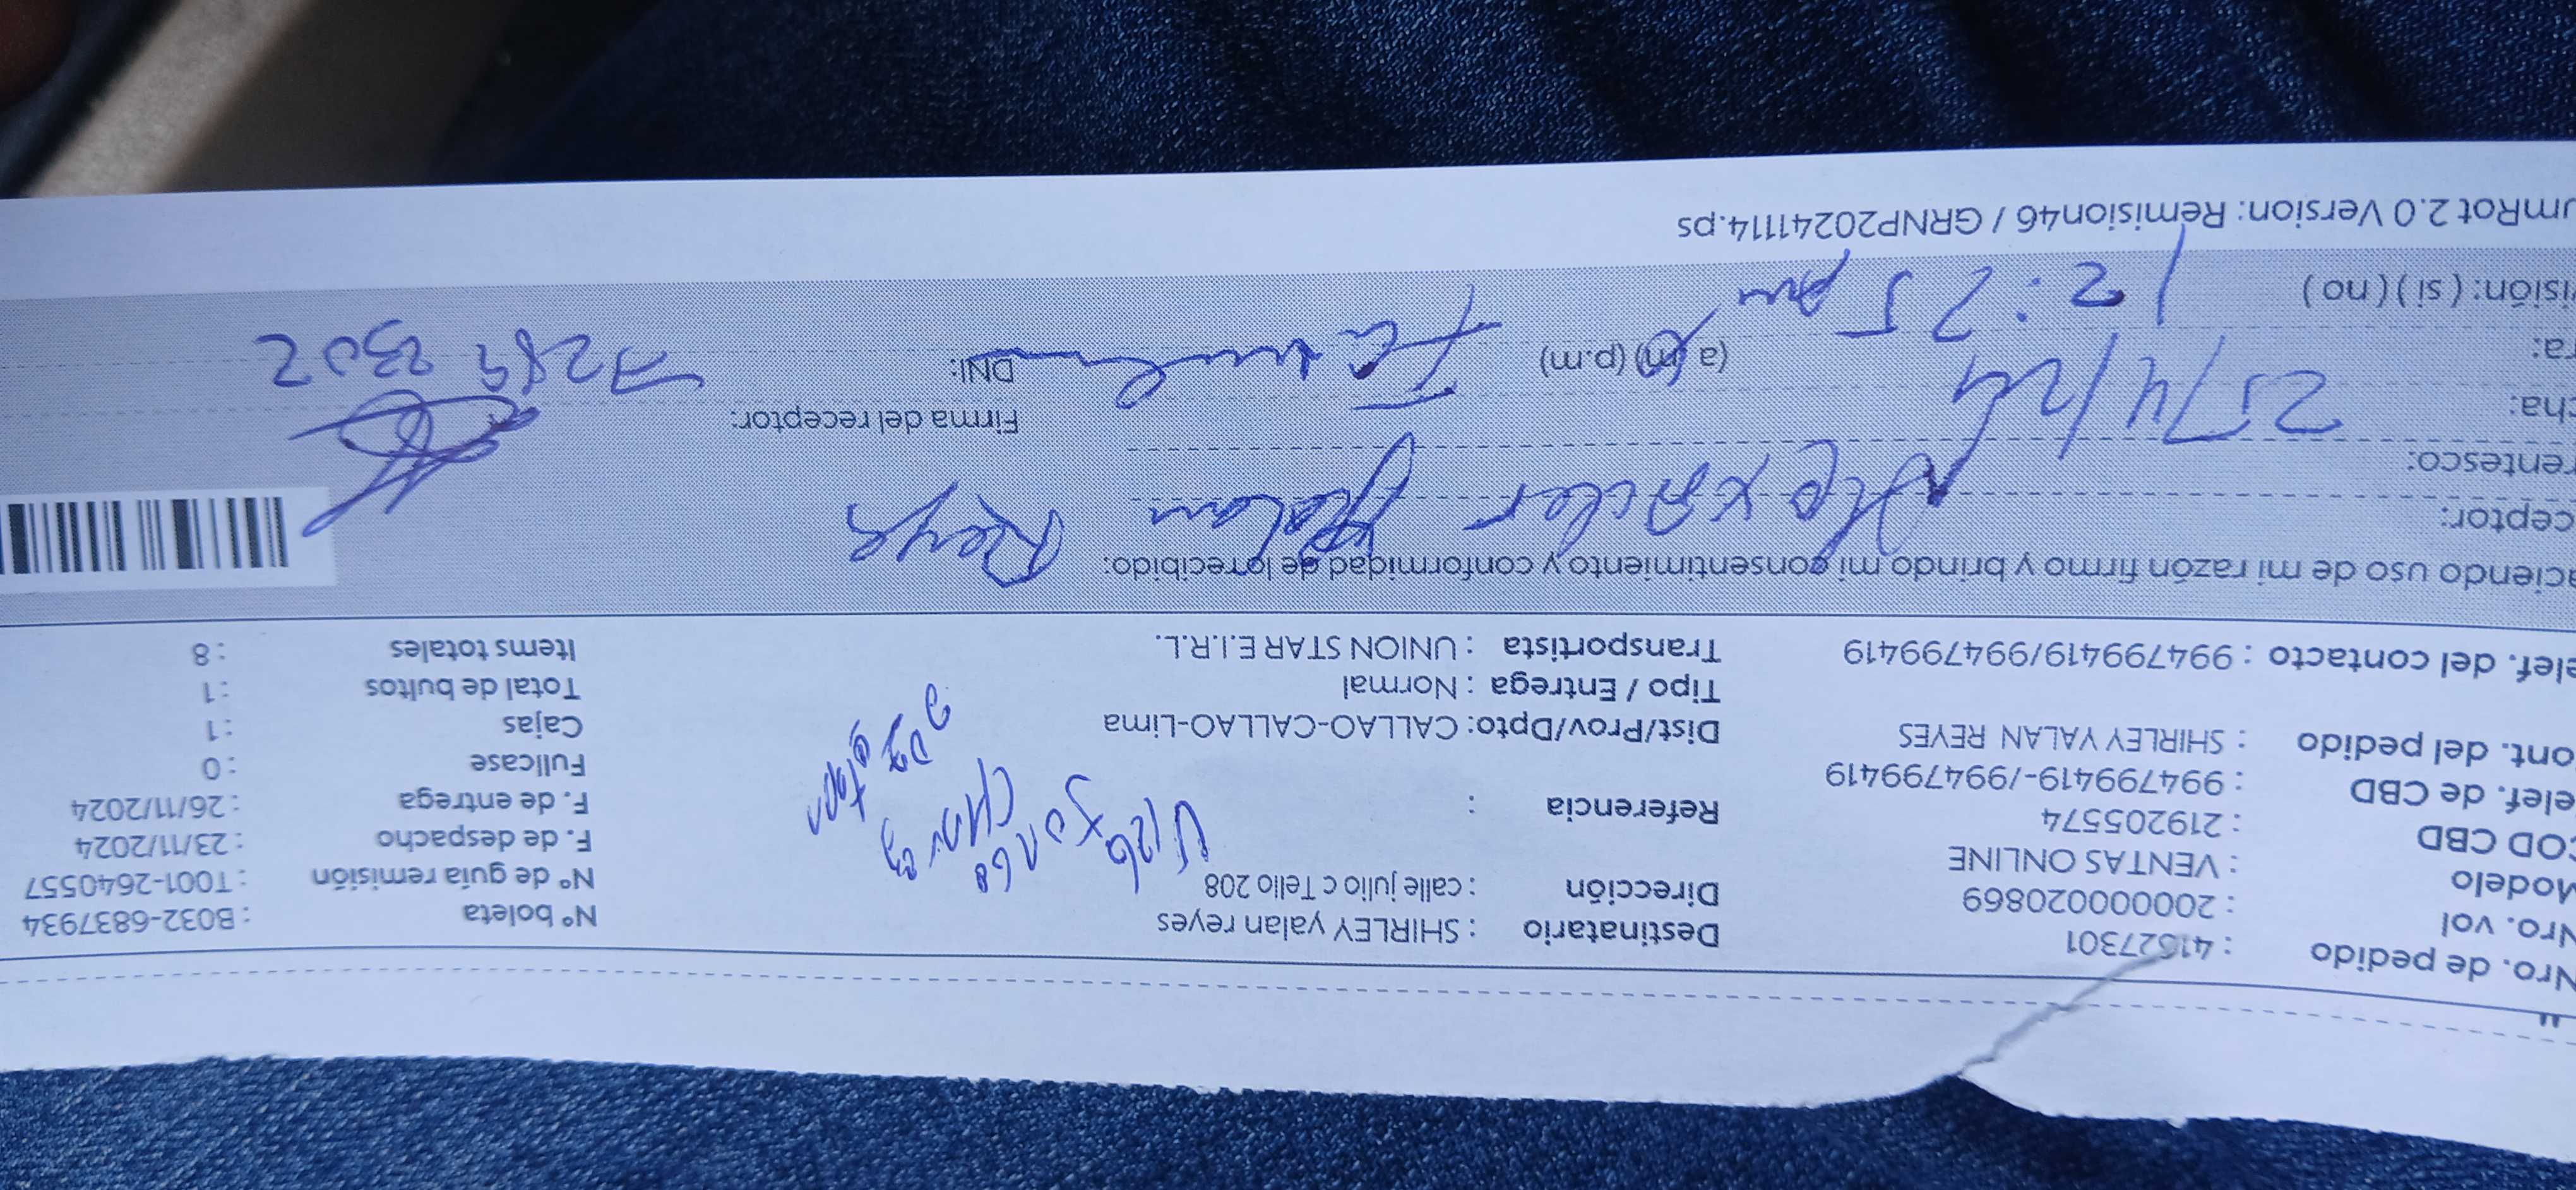 Nro. de pedido : 41627301 Destinatario : SHIRLEY yalan reyes N° boleta : B032-6837934
Nro. vol : 2000000020869 Dirección : calle julio c Tello 208 N° de guía remisión : T001-2640557
Modelo : VENTAS ONLINE F. de despacho : 23/11/2024
COD CBD : 219205574 Referencia : F. de entrega : 26/11/2024
elef. de CBD : 994799419-/994799419 Fullcase : 0
ont. del pedido : SHIRLEY YALAN REYES Dist/Prov/Dpto: CALLAO-CALLAO-Lima Cajas : 1
Tipo / Entrega : Normal Total de bultos : 1
elef. del contacto : 994799419/994799419 Transportista : UNION STAR E.I.R.L. Items totales : 8
aciendo uso de mi razón firmo y brindo mi consentimiento y conformidad de lo recibido:
ceptor: Yalan Reyes
rentesco:
cha: Firma del receptor:
ra: (a.m) (p.m) DNI:
isión: ( si ) ( no ) 12:25 pm
mRot 2.0 Version: Remision46 / GRNP20241114.ps